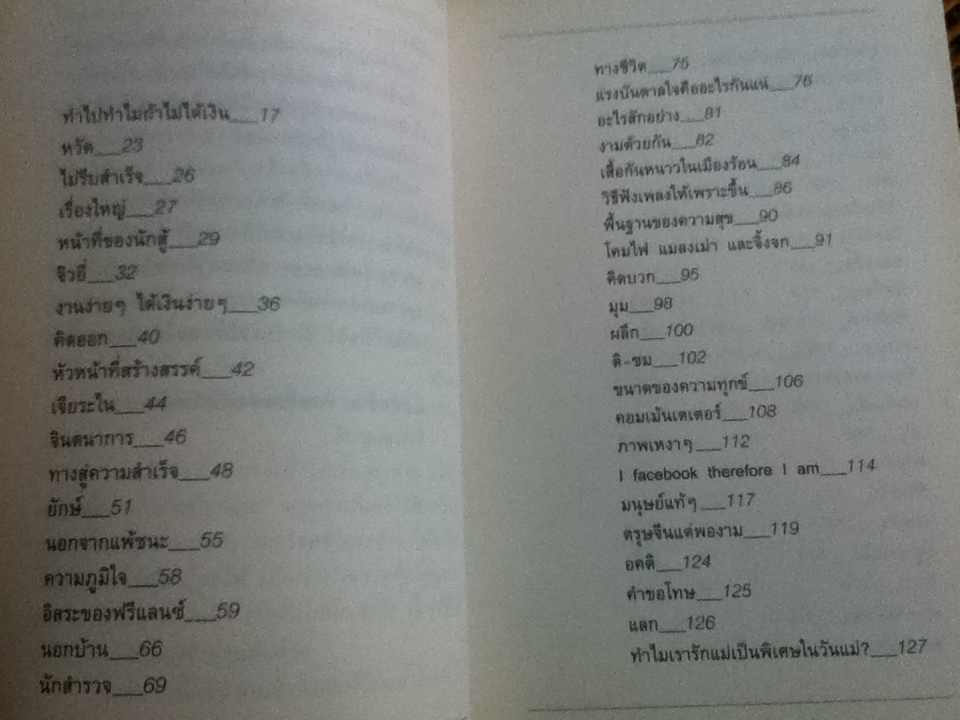 ทำไปทำไมถ้าไม่ได้เงิน___17
หวัด___23
ไม่รีบสำเร็จ___26
เรื่องใหญ่___27
หน้าที่ของนักสู้___29
จิวยี่___32
งานง่ายๆ ได้เงินง่ายๆ___36
คิดออก___40
หัวหน้าที่สร้างสรรค์___42
เจียระไน___44
จินตนาการ___46
ทางสู่ความสำเร็จ___48
ยักษ์___51
นอกจากแพ้ชนะ___55
ความภูมิใจ___58
อิสระของฟรีแลนซ์___59
นอกบ้าน___66
นักสำรวจ___69
ทางชีวิต___75
แรงบันดาลใจคืออะไรกันแน่___76
อะไรสักอย่าง___81
งามด้วยกัน___82
เสื้อกันหนาวในเมืองร้อน___84
วิธีฟังเพลงให้เพราะขึ้น___86
พื้นฐานของความสุข___90
โคมไฟ แมลงเม่า และจิ้งจก___91
คิดบวก___95
มุม___98
ผลึก___100
ติ-ชม___102
ขนาดของความทุกข์___106
คอมเม้นเตเตอร์___108
ภาพเหงาๆ___112
I facebook therefore I am___114
มนุษย์แท้ๆ___117
ตรุษจีนแต่พองาม___119
อคติ___124
คำขอโทษ___125
แลก___126
ทำไมเรารักแม่เป็นพิเศษในวันแม่?___127